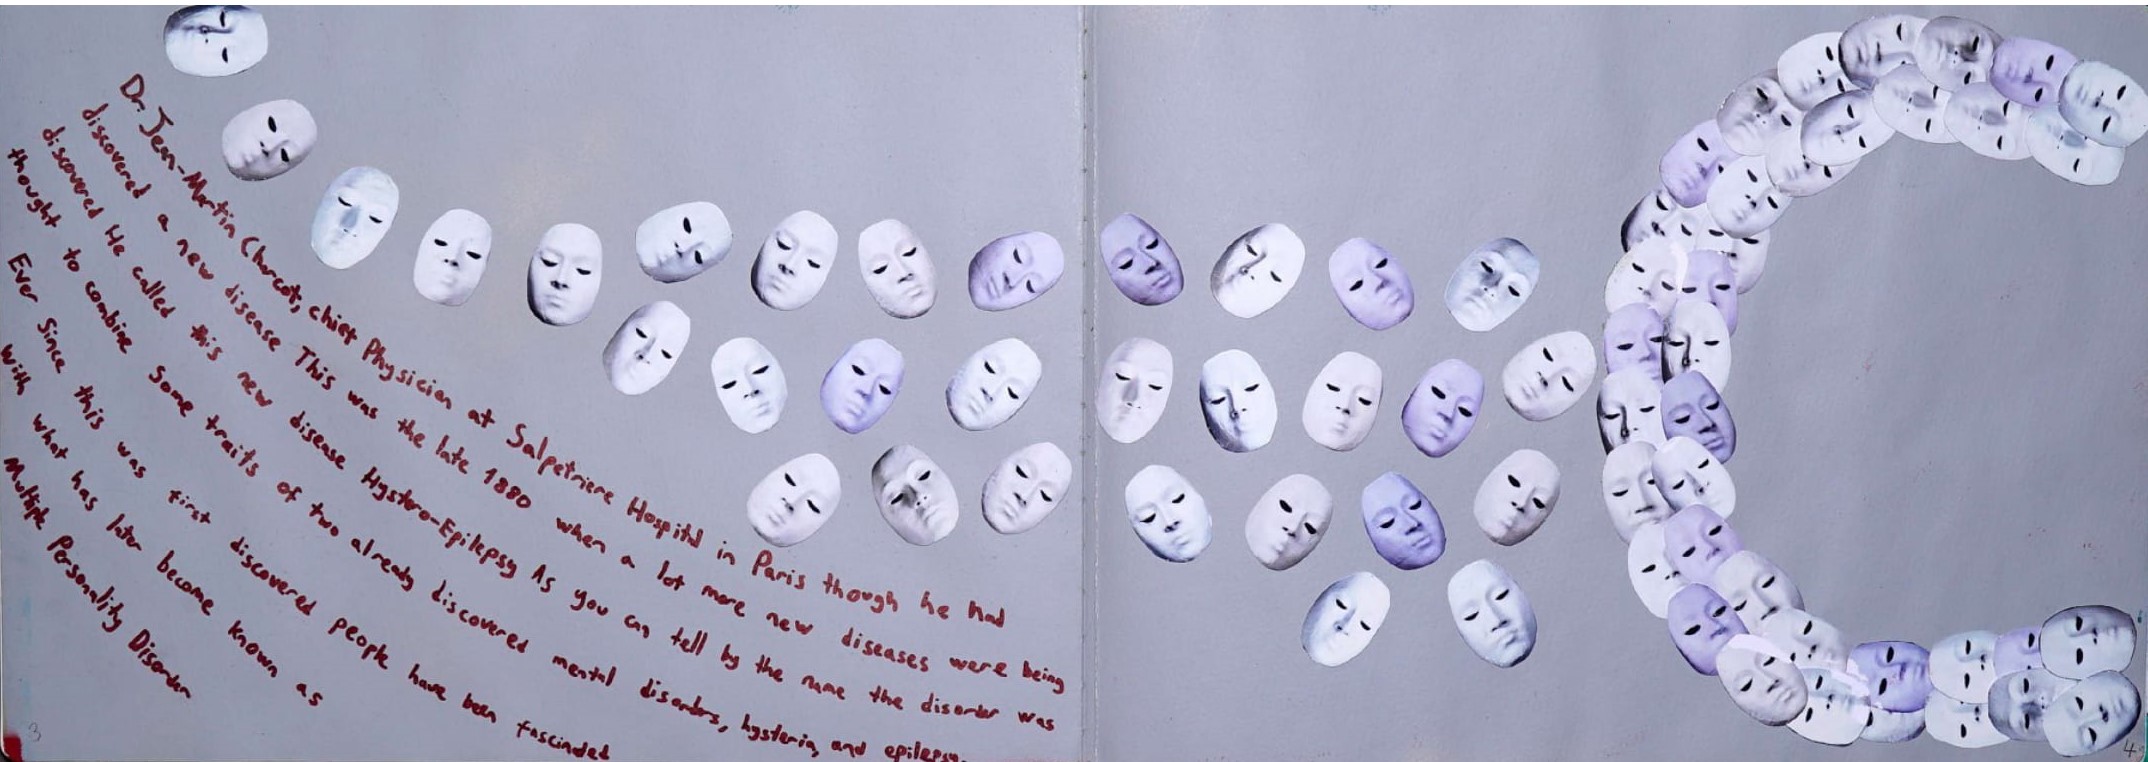 Dr. Jean-Martin Charcot, chief Physician at Salpetriere Hospital in Paris though he had
discovered a new disease This was the late 1880 when a lot more new diseases were being
discovered He called this new disease Hystero-Epilepsy As you can tell by the name the disorder was
thought to combine some traits of two already discovered mental disorders, hysteria, and epilepsy.
Ever Since this was first discovered people have been fascinated
with what has later become known as
Multiple Personality Disorder
3
4